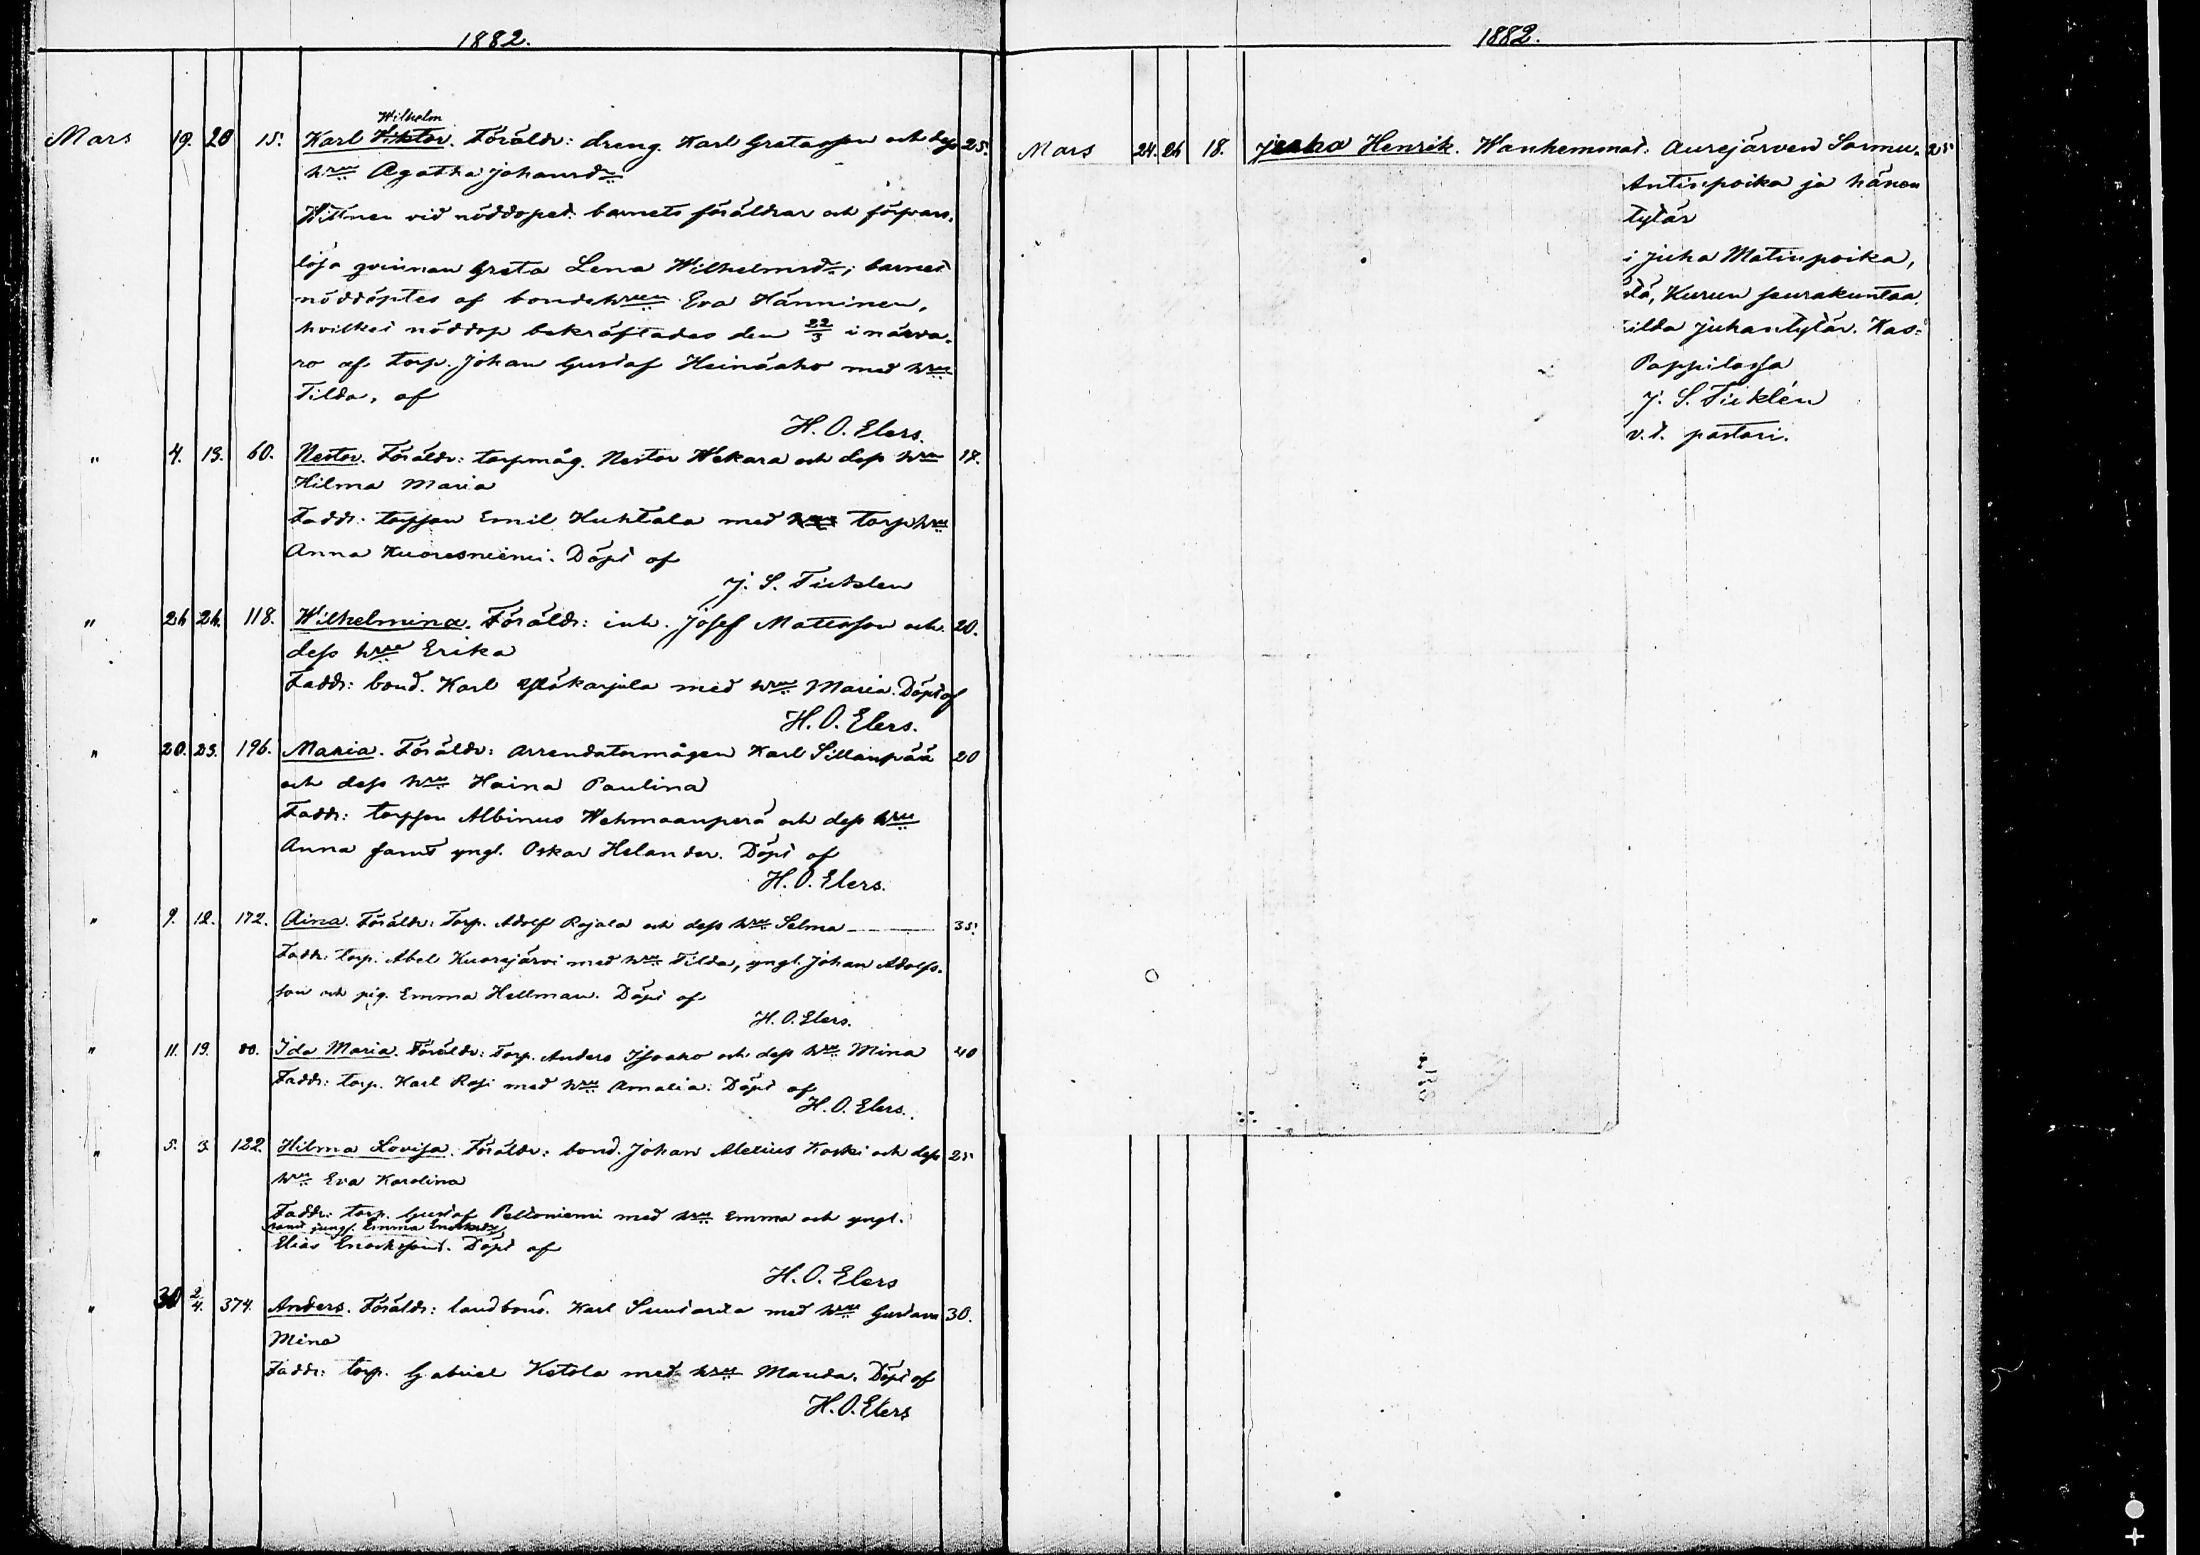 1882.
Wilhelm
Mars 19. 20 15. Karl Viktor. Föräldr: dreng. Karl Gretasson och dess 25.
hru Agatha Johansdr
Wittnen vid nöddopet: barnets föräldrar och försvars-
lösa qvinnan Greta Lena Wilhelmsdr; barnet
nöddöptes af bondehrun Eva Hänninen,
hvilket nöddop bekräftades den 22/3 i närva-
ro af torp. Johan Gustaf Heinäaho med hru
Tilda, af
H. O. Elers.
" 4. 13. 60. Nestor. Föräldr: torpmåg. Nestor Wekara och dess hru 17.
Hilma Maria
Faddr: torpson Emil Huhtala med torphru
Anna Kuoresniemi. Döpt af
J. S. Ticklen
" 24 24. 118. Wilhelmina. Föräldr: inh. Josef Mattsson och 20.
dess hru Erika
Faddr: bond. Karl Yläkarjula med hru Maria. Döpt af
H. O. Elers.
" 20. 23. 196. Maria. Föräldr: arrendatormågen Karl Sillanpää 20
och dess hru Haina Paulina
Faddr: torpson Albinus Wehmaanperä och dess hru
Anna samt yngl. Oskar Helander. Döpt af
H. O. Elers.
" 9. 12. 172. Aina. Föräldr: Torp. Adolf Rajala och dess hru Selma 35.
Faddr: torp. Abel Kuorejärvi med hru Tilda, yngl. Johan Adolfs-
son och pig. Emma Hellman. Döpt af
H. O. Elers.
" 11. 19. 80. Ida Maria. Föräldr: Torp. Anders Isoaho och dess hru Mina 40
Faddr: torp. Karl Rosi med hru Amalia. Döpt af
H. O. Elers.
" 5. 3. 122. Hilma Lovisa. Föräldr: bond. Johan Alexius Koski och dess 25
hru Eva Karolina
Faddr: torp. Gustaf Peltoniemi med hru Emma och yngl.
samt jungf. Emma
Elias Enochsson. Döpt af
H. O. Elers
" 30 2/4. 374. Anders. Föräldr: landbond. Karl med hru Gustava 30.
Mina
Faddr: torp. Gabriel Ketola med hru Manda. Döpt af
H. O. Elers
1882.
Mars 24. 26 18. Juha Henrik. Wanhemmat: Aurejärven 25
Antinpoika ja hänen
tytär
i Juha Matinpoika,
stä, Kurun seurakuntaa
ilda Juhantytär. Kas-
Pappilassa
J. S. Ticklén
v.t. pastori.